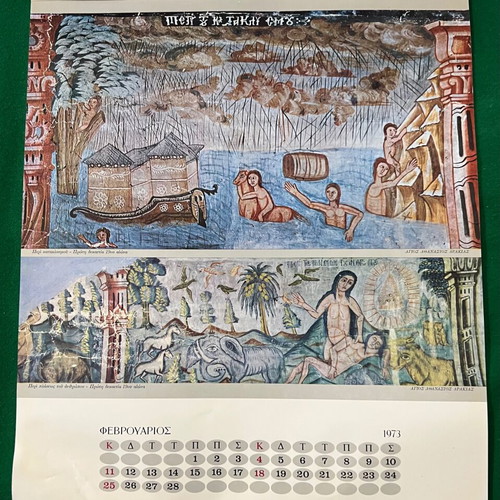 Περὶ κατακλυσμοῦ - Πρώτη δεκαετία 19ου αἰώνα
ΑΓΙΟΣ ΑΘΑΝΑΣΙΟΣ ΔΡΑΚΙΑΣ
Περὶ πλάσεως τοῦ ἀνθρώπου - Πρώτη δεκαετία 19ου αἰώνα
ΑΓΙΟΣ ΑΘΑΝΑΣΙΟΣ ΔΡΑΚΙΑΣ
ΦΕΒΡΟΥΑΡΙΟΣ 1973
Κ Δ Τ Τ Π Π Σ Κ Δ Τ Τ Π Π Σ
1 2 3 4 5 6 7 8 9 10
11 12 13 14 15 16 17 18 19 20 21 22 23 24
25 26 27 28